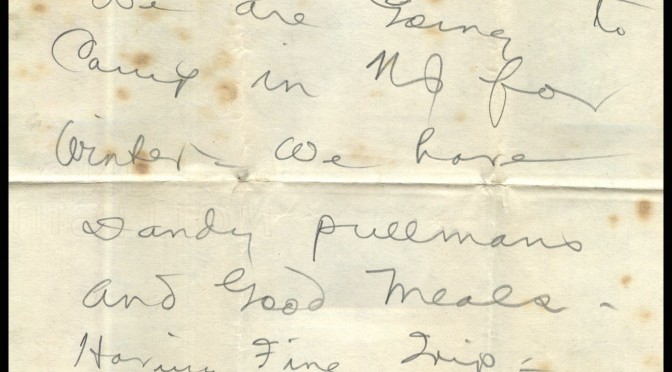 We are Going to
Camp in NJ for
Winter - We have
Dandy pullmans
and Good Meals -
Having Fine Trip -